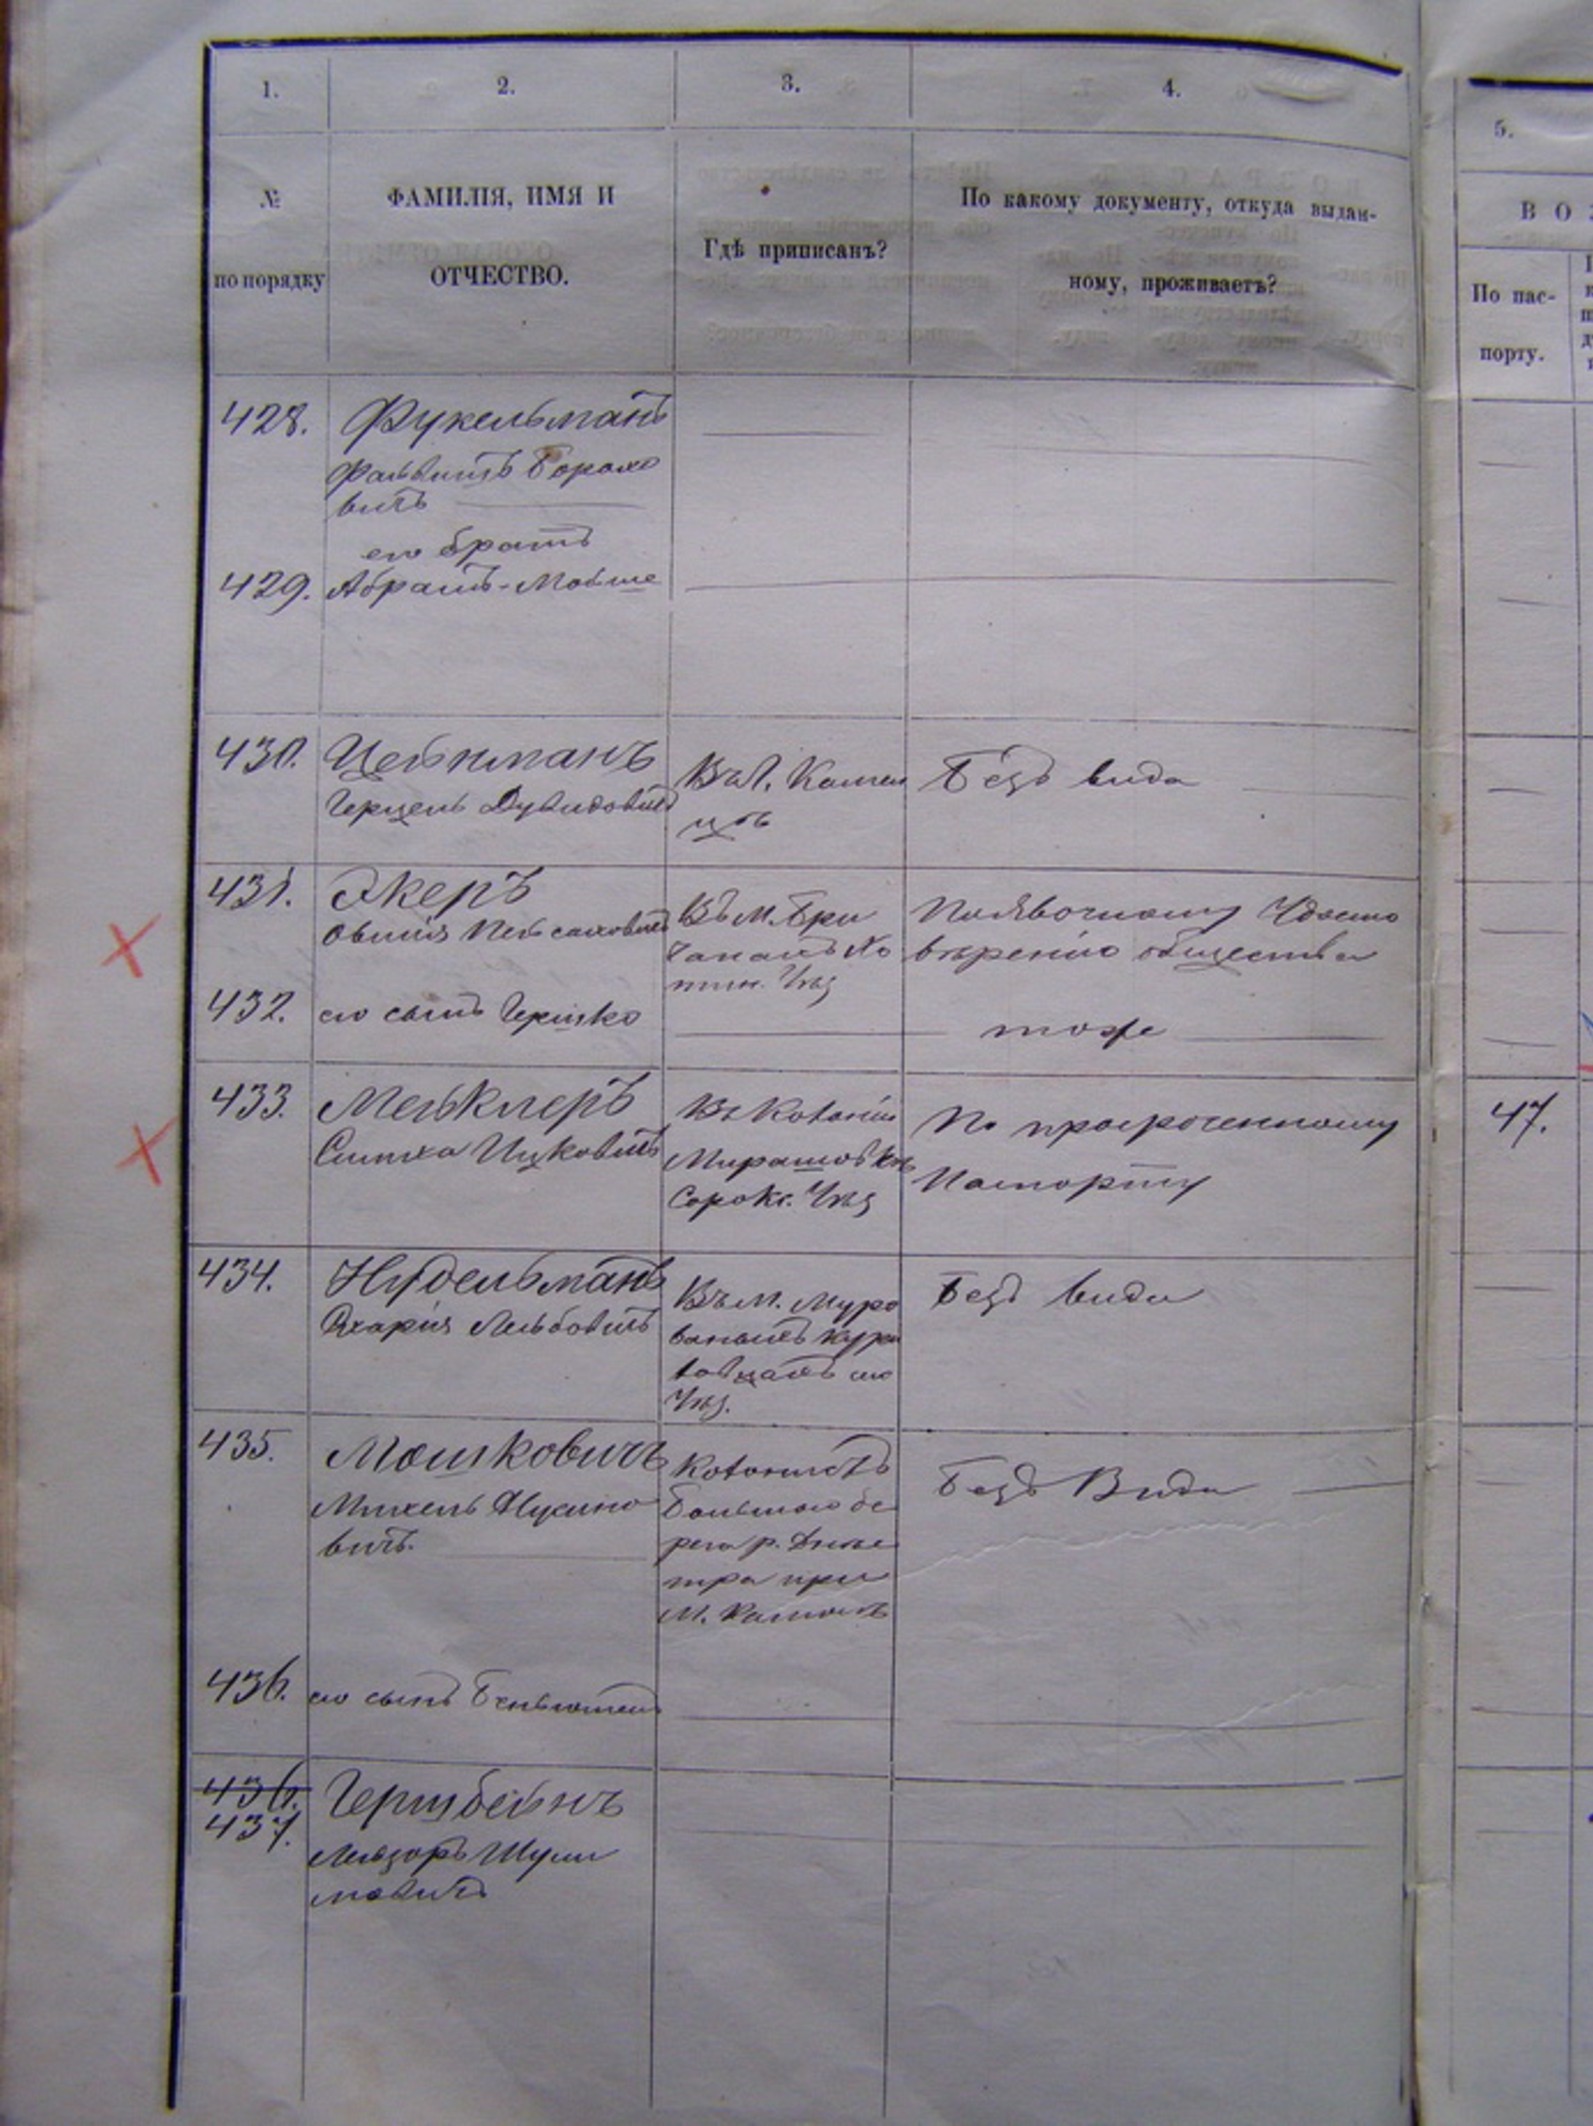 1.
2.
3.
4.
5.
№
по порядку
ФАМИЛІЯ, ИМЯ И
ОТЧЕСТВО.
Гдѣ приписанъ?
По какому документу, откуда выдан-
ному, проживаетъ?
В О З
По пас-
порту.
428. Фукельманъ
Борохо
вичъ
его братъ
429. Абрамъ-Мовше
430. Цейнманъ
Герцель Дувидовичъ
Въ Г. Камен
цѣ
Безъ вида
431. Экеръ
Овшія Пейсаховичъ
Въ М. Бри
чанахъ Хо
тин. Уѣз
По явочному Удосто
вѣренію общества
432. его сынъ Гершко
тоже
433. Мейклеръ
Симха Ицковичъ
Въ Колоніи
Мирашовкѣ
Сорок. Уѣз
По просроченному
Паспорту
47.
434. Нудельманъ
Схарія Лейбовичъ
Въ М. Муро
ваныхъ Кури
ловцахъ
Уѣз.
Безъ вида
435. Мошковичъ
Михель Нусино
вичъ.
Колонистъ
бе
рега р. Днѣс
тра при
М.
Безъ Вида
436. его сынъ Беньюмен
436.
437. Герцбейнъ
Лейзоръ Шули
мовичъ